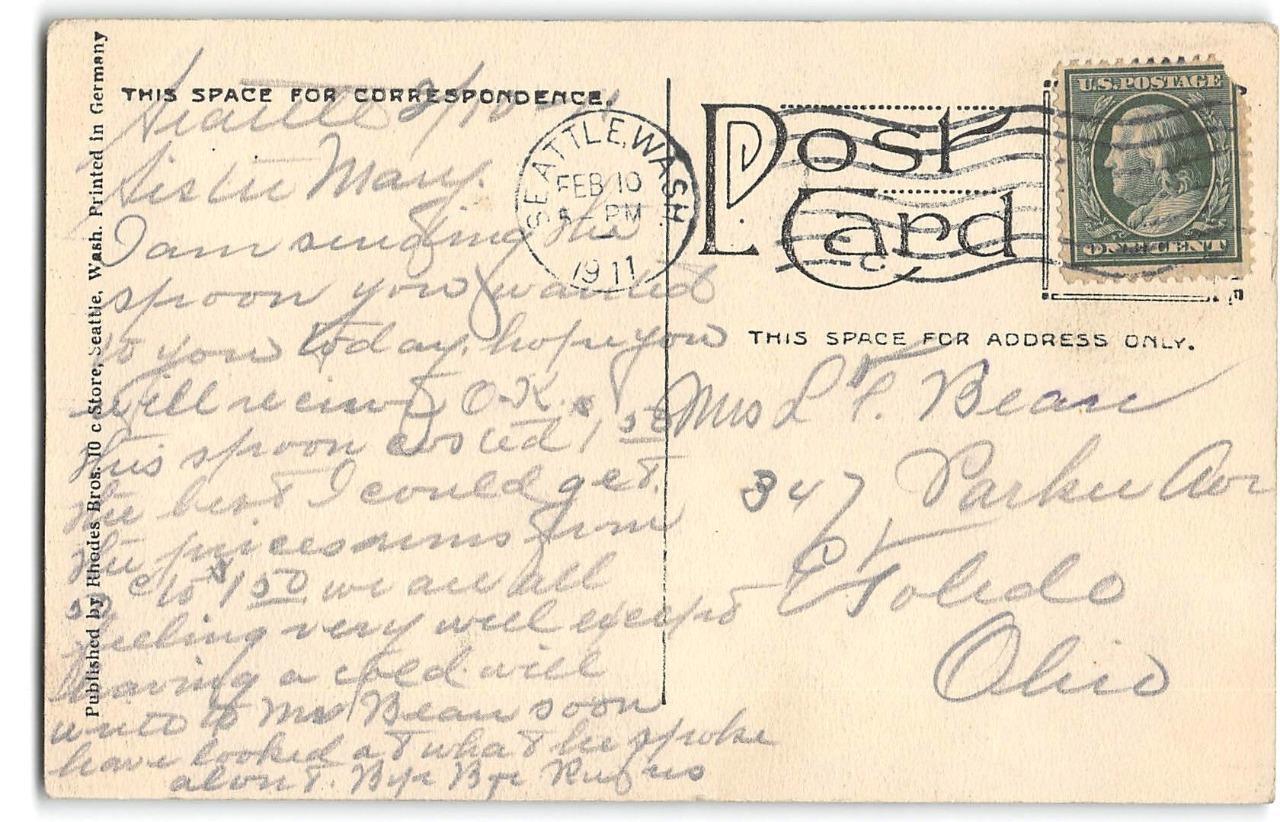 Published by Rhodes Bros. 10 c Store, Seattle, Wash. Printed in Germany
THIS SPACE FOR CORRESPONDENCE.
Seattle 2/10
Sister Mary.
I am sending the
spoon you wanted
to you today. hope you
will receive O.K.
this spoon costed $1.50
the best I could get.
the prices runs from
50c to $1 50 we are all
feeling very well except
having a cold will
write to Mr Bean soon
have looked at what he spoke
about. Bye Bye Rufus
SEATTLE, WASH.
FEB 10
5 - PM
1911
Post
Card
U.S. POSTAGE
ONE CENT
THIS SPACE FOR ADDRESS ONLY.
Mrs L F. Bean
347 Parker Ave
E Toledo
Ohio